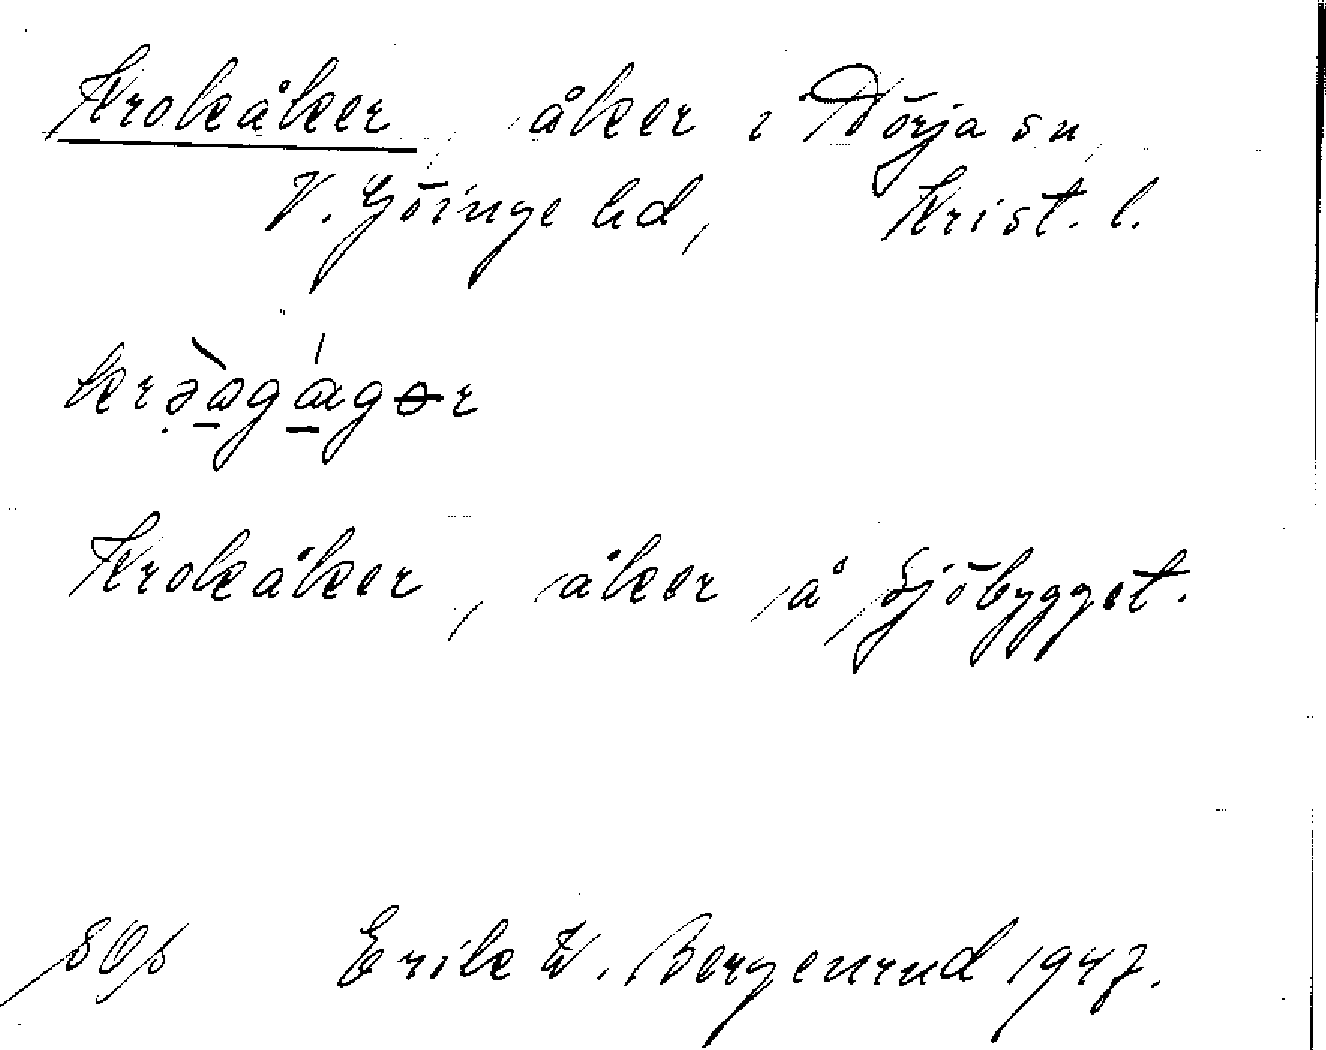 Krokåker, åker i Nörja sn,
V. Göinge hd, Krist. l.
Krokåker, åker å Sjöbygget.
Erik W. Bergenrud 1947.